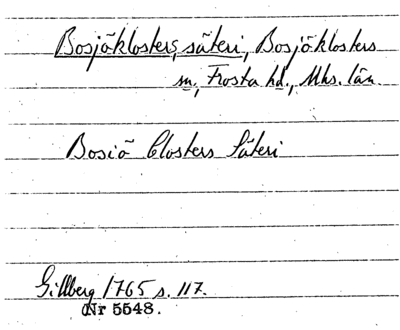 Bosjöklosters säteri, Bosjöklosters
sn, Frosta hd., Mhs. län.
Bosiö Closters Säteri
Gillberg 1765 s. 117.
Nr 5548.